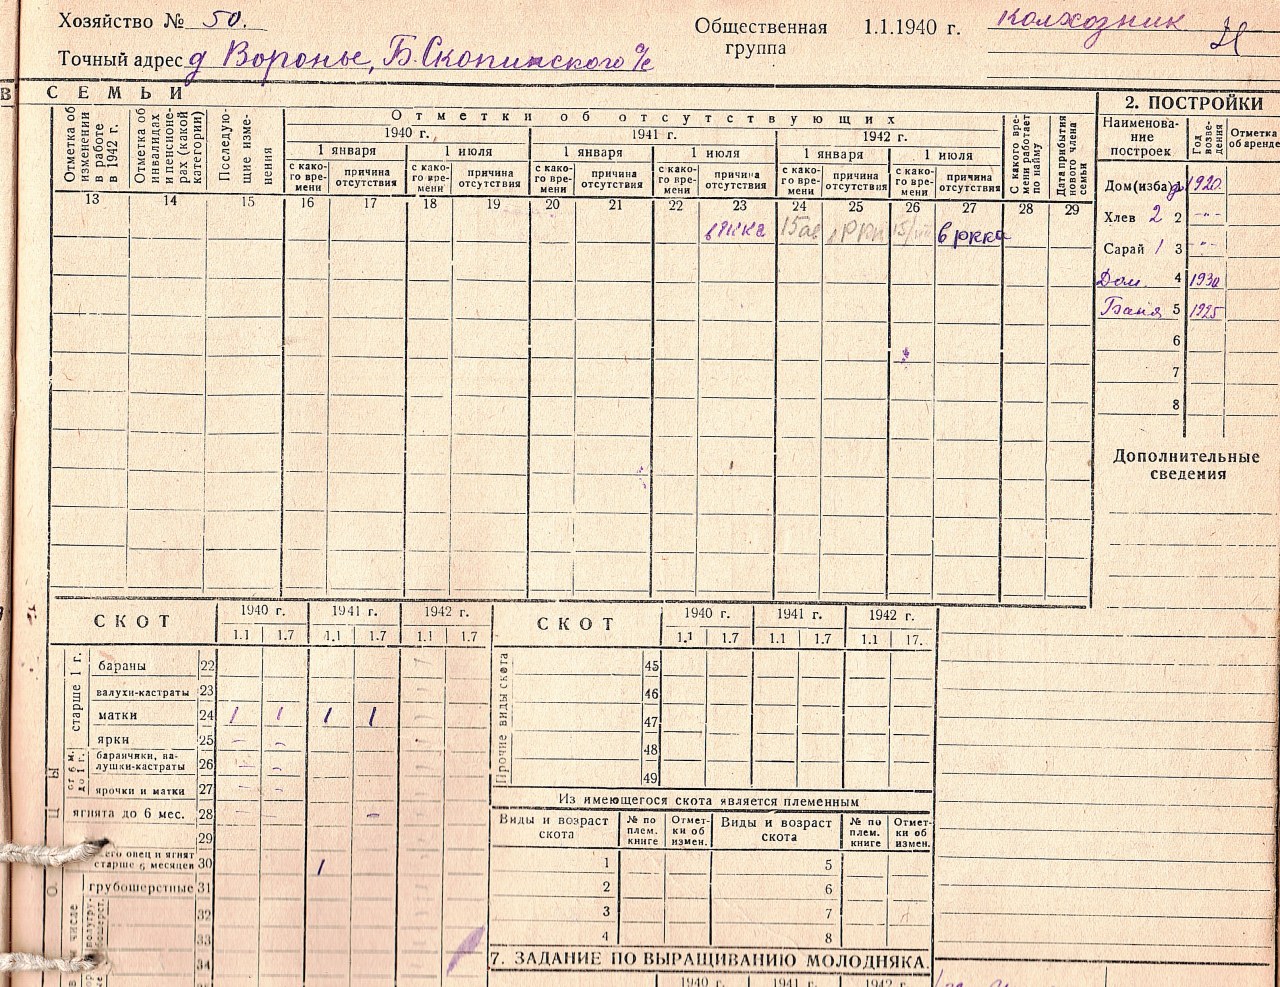 Хозяйство № 50.
Общественная группа 1.1.1940 г. Колхозник
Точный адрес д Воронье, Б. Скопинского с/с
СЕМЬИ
Отметка об изменении в работе в 1942 г.
Отметка об инвалидах и пенсионерах (какой категории)
Последующие изменения
Отметки об отсутствующих
1940 г. 1941 г. 1942 г.
1 января 1 июля 1 января 1 июля 1 января 1 июля
с какого времени причина отсутствия с какого времени причина отсутствия с какого времени причина отсутствия с какого времени причина отсутствия с какого времени причина отсутствия с какого времени причина отсутствия
С какого времени работает по найму
Дата прибытия нового члена семьи
13 14 15 16 17 18 19 20 21 22 23 24 25 26 27 28 29
в РККА 15 ав в РКК 15/VIII в РККА
2. ПОСТРОЙКИ
Наименование построек Год возведения Отметка об аренде
Дом (изба) 1920
Хлев 2 2 -"-
Сарай 1 3 -"-
Дом. 4 1930
Баня 5 1925
6
7
8
Дополнительные сведения
СКОТ 1940 г. 1941 г. 1942 г.
1.1 1.7 1.1 1.7 1.1 1.7
старше 1 г.
бараны 22
валухи-кастраты 23
матки 24 1 1 1 1
ярки 25
от 6 м. до 1 г.
баранчики, валушки-кастраты 26
ярочки и матки 27
ягнята до 6 мес. 28
29
его овец и ягнят старше 6 месяцев 30 1
грубошерстные 31
числе
32
33
34
СКОТ 1940 г. 1941 г. 1942 г.
1.1 1.7 1.1 1.7 1.1 17.
Прочие виды скота
45
46
47
48
49
Из имеющегося скота является племенным
Виды и возраст скота № по плем. книге Отметки об измен. Виды и возраст скота № по плем. книге Отметки об измен.
1 5
2 6
3 7
4 8
7. ЗАДАНИЕ ПО ВЫРАЩИВАНИЮ МОЛОДНЯКА.
1940 г. 1941 г. 1942 г.